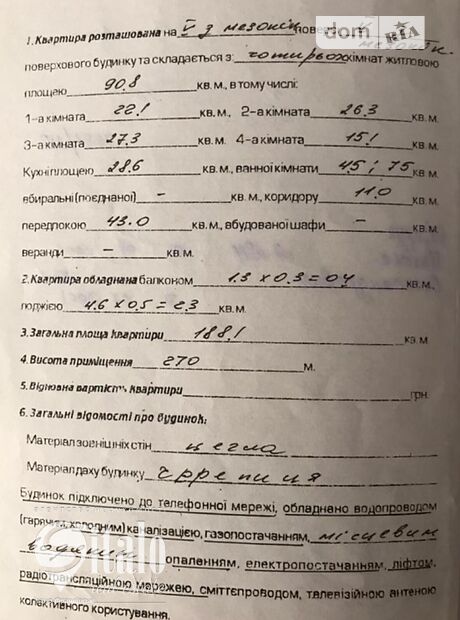 1. Квартира розташована на V з мезонін поверсі V
dom RIA
мезонін
поверхового будинку та складається з: чотирьох кімнат житловою
площею 90.8 кв. м., в тому числі:
1-а кімната 22.1 кв. м., 2-а кімната 26.3 кв. м.
3-а кімната 27.3 кв. м. 4-а кімната 15.1 кв. м.
Кухні площею 28.6 кв. м., ванної кімнати 4.5; 7.5 кв. м
вбиральні (поєднаної) – кв. м., коридору 11.0
передпокою 43.0 кв. м., вбудованої шафи – кв. м.
веранди – кв. м.
2. Квартира обладнана балконом 1.3 x 0.3 = 0.4 кв. м.,
лоджією 4.6 x 0.5 = 2.3 кв. м.
3. Загальна площа квартири 188.1 кв. м.
4. Висота приміщення 270 м.
5. Відновна вартість квартири грн.
6. Загальні відомості про будинок:
Матеріал зовнішніх стін цегла
Матеріал даху будинку черепиця
Будинок підключено до телефонної мережі, обладнано водопроводом
(гарячим, холодним) каналізацією, газопостачанням, місцевим
водяним опаленням, електропостачанням, ліфтом,
радіотрансляційною мережею, сміттєпроводом, телевізійною антеною
колективного користування.